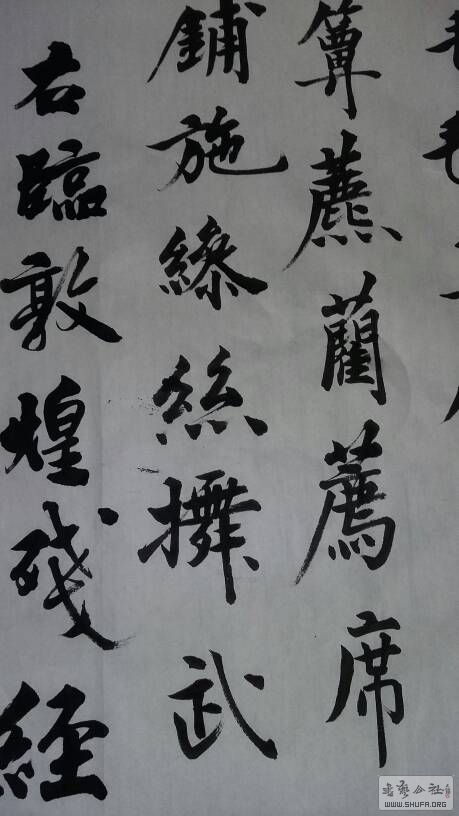 簟藨藺薦席
鋪施縩絲攤武
右臨敦煌殘經
書藝公社
WWW.SHUFA.ORG